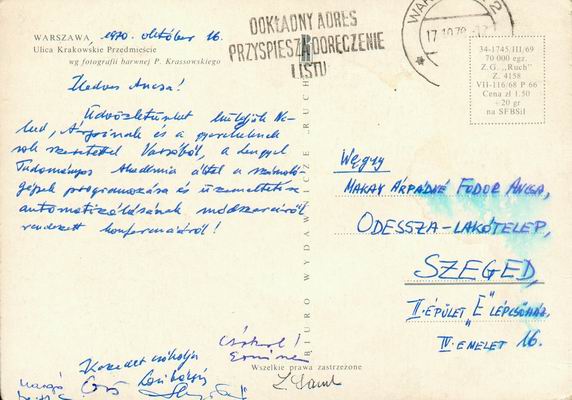 WARSZAWA 1970. október 16.
Ulica Krakowskie Przedmieście
wg fotografii barwnej P. Krassowskiego
DOKŁADNY ADRES
PRZYSPIESZA DORĘCZENIE
LISTU
17.10.70
34-1745/III/69
70 000 egz.
Z.G. „Ruch"
Z. 4158
VII-116/68 P 66
Cena zł 1.50
+20 gr
na SFBSiI
Kedves Anca!
Üdvözletünket küldjük Ne-
ked, Árpinak és a gyerekeknek
sok szeretettel Varsóból, a Lengyel
Tudományos Akadémia által a számoló
gépek programozása és üzemeltetése
automatizálásának módszereiről
rendezett konferenciáról!
Csókol!
Kezedet csókolja
BIURO WYDAWNICZE „RUCH"
Wszelkie prawa zastrzeżone
Węgry
MAKAY ÁRPÁDNÉ FODOR ANCA,
ODESSZA-LAKÓTELEP,
SZEGED,
II. ÉPÜLET „E" LÉPCSŐHÁZ,
IV. EMELET 16.